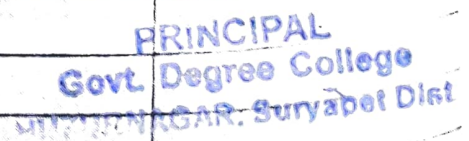 PRINCIPAL
Govt. Degree College
HUZURNAGAR. Suryapet Dist